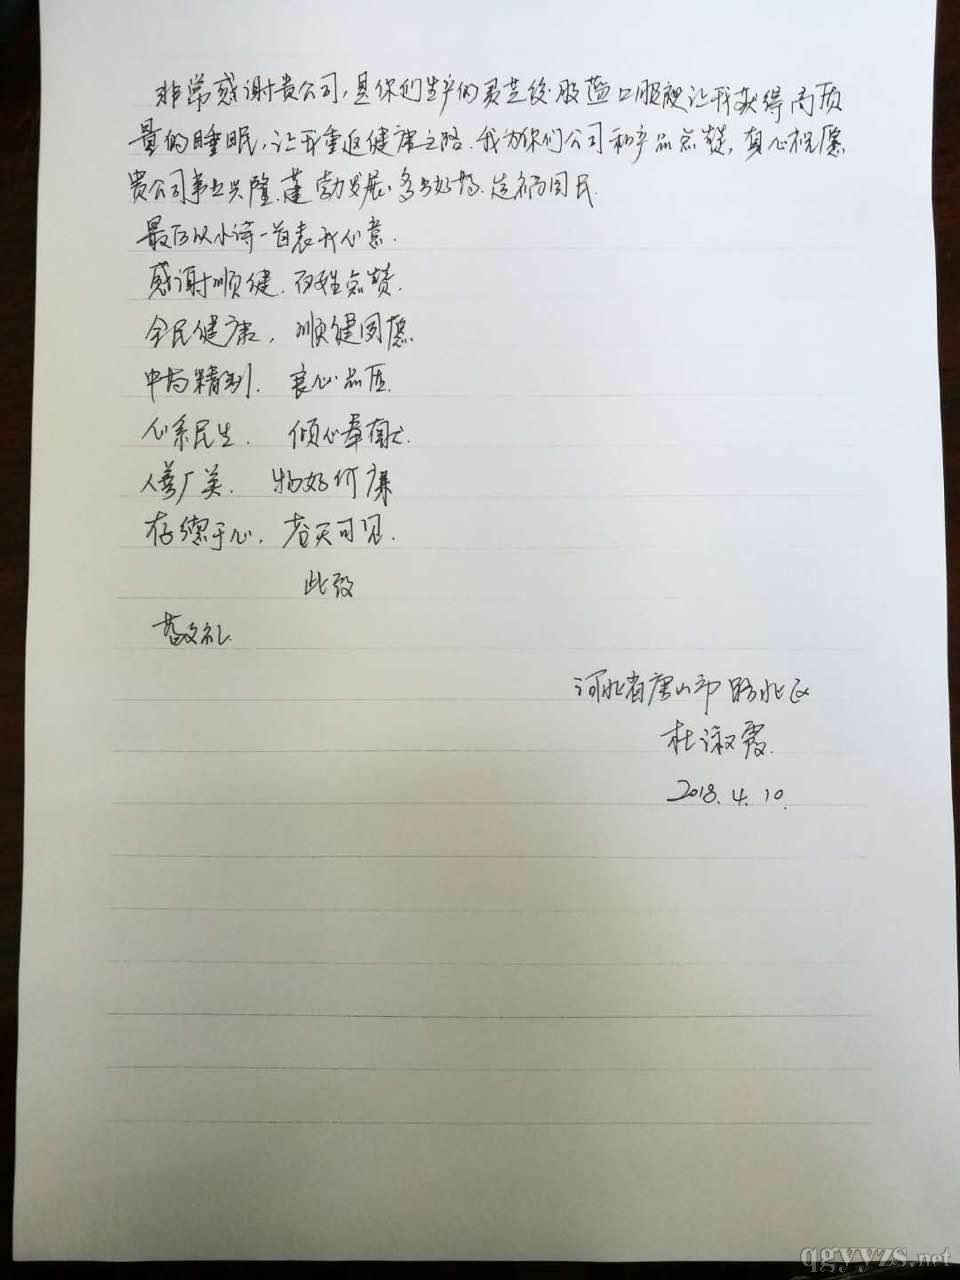 非常感谢贵公司,是你们生产的灵芝绞股蓝口服液让我获得高质
量的睡眠,让我重返健康之路.我为你们公司和产品点赞,真心祝愿
贵公司事业兴隆.蓬勃发展.多出好药.造福国民.
最后以小诗一首表我心意.
感谢顺健.百姓点赞.
全民健康,顺健同愿
中药精制.良心品质.
心系民生.倾心奉献.
人善厂美.物好价廉
存德于心,苍天可见.
此致
敬礼.
河北省唐山市路北区
杜淑霞.
2018.4.10.
qgyyzs.net